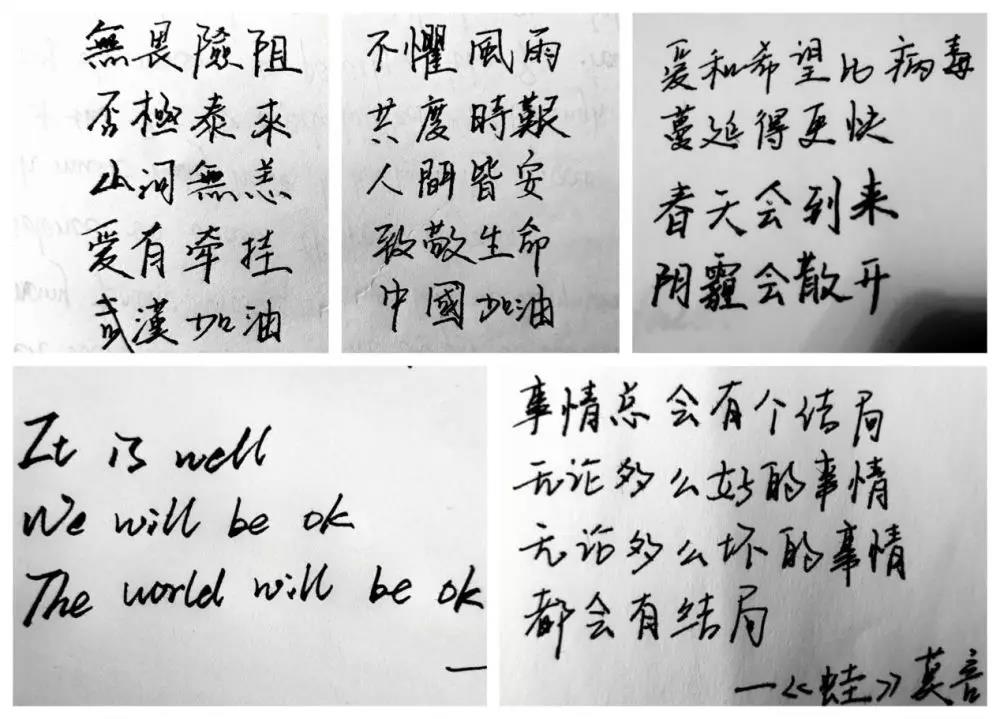 無畏險阻
否極泰來
山河無恙
愛有牽挂
武漢加油
不懼風雨
共度時艱
人間皆安
致敬生命
中國加油
爱和希望比病毒
蔓延得更快
春天会到来
阴霾会散开
It is well
We will be ok
The world will be ok
—
事情总会有个结局
无论多么好的事情
无论多么坏的事情
都会有结局
—《蛙》莫言